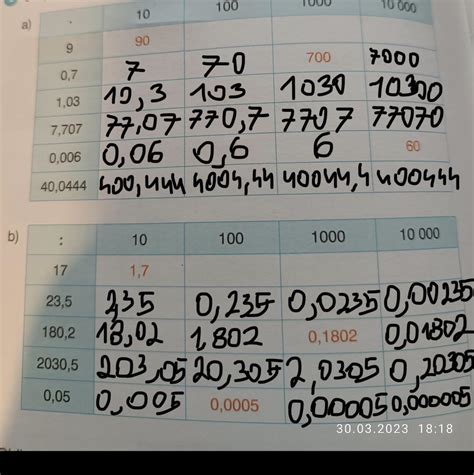 a) · 10 100 1000 10 000
9 90
0,7 7 70 700 7000
1,03 10,3 103 1030 10300
7,707 77,07 770,7 7707 77070
0,006 0,06 0,6 6 60
40,0444 400,444 4004,44 40044,4 400444
b) : 10 100 1000 10 000
17 1,7
23,5 2,35 0,235 0,0235 0,00235
180,2 18,02 1,802 0,1802 0,01802
2030,5 203,05 20,305 2,0305 0,20305
0,05 0,005 0,0005 0,00005 0,000005
30.03.2023 18:18